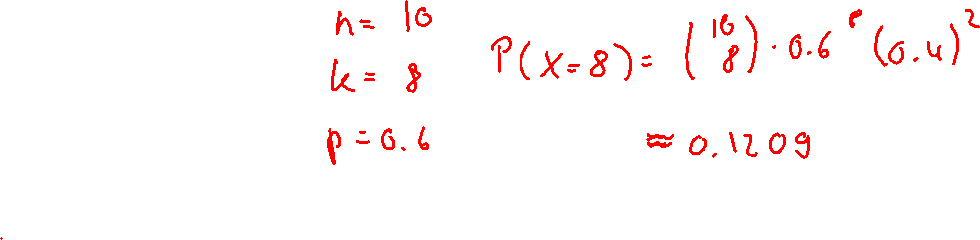 n = 10
k = 8
p = 0.6
P(X=8) = (10 8) · 0.6^8 (0.4)^2
≈ 0.1209